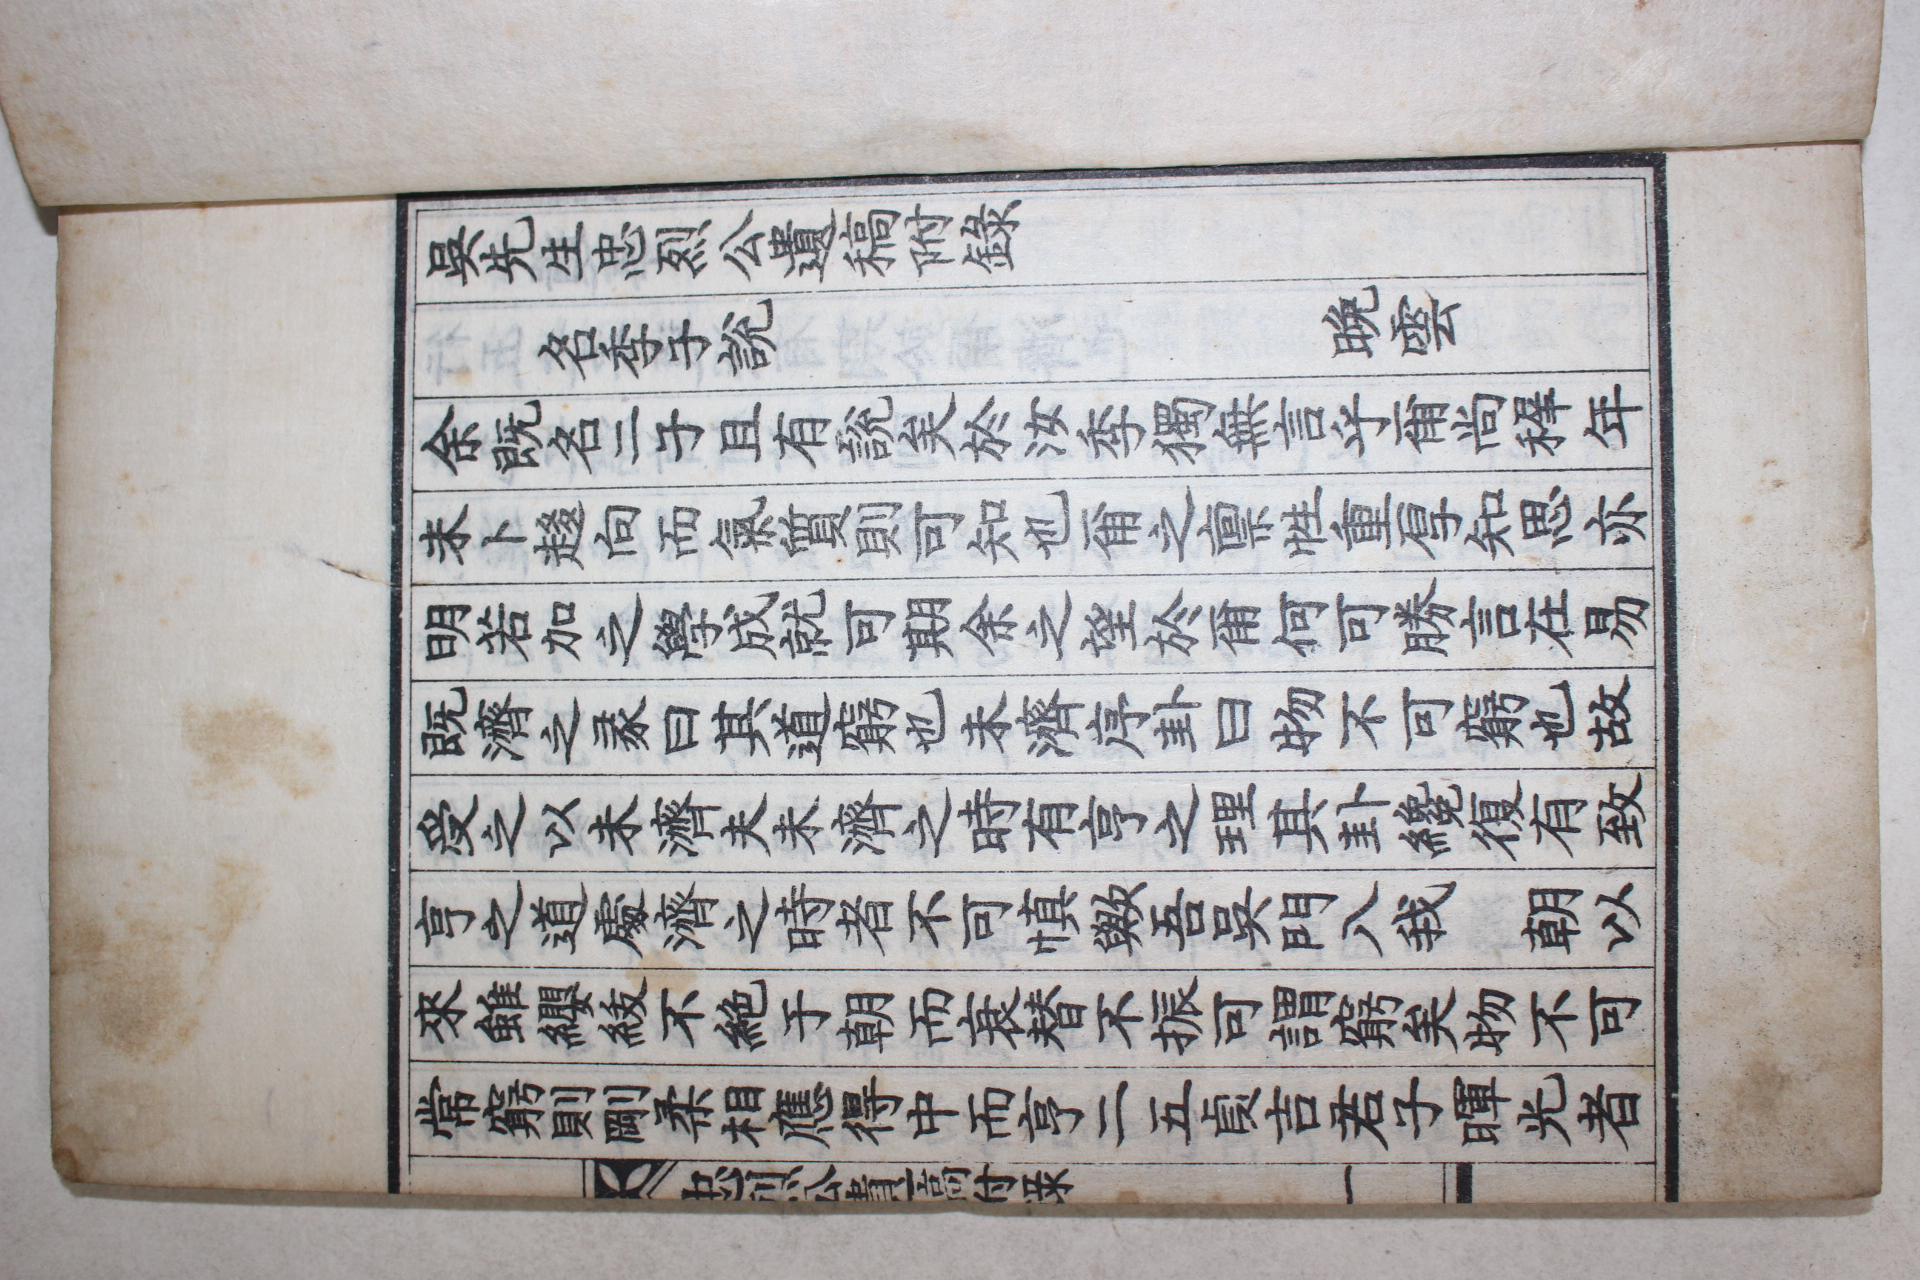 吳先生忠烈公遺稿附錄
名季子說 晩雲
余旣名二子且有說矣於汝季獨無言乎爾尚穉年
未卜趍向而氣質則可知也爾之禀性重厚知思亦
明若加之學成就可期余之望於爾何可勝言在易
旣濟之彖曰其道窮也未濟序卦曰物不可窮也故
受之以未濟夫未濟之時有亨之理其卦纔復有致
亨之道處濟之時者不可愼歟吾吳門入我 朝以
來雖纓緌不絶于朝而衰替不振可謂窮矣物不可
常窮則剛柔相應得中而亨二五貞吉君子暉光者
忠烈公遺稿附錄 一